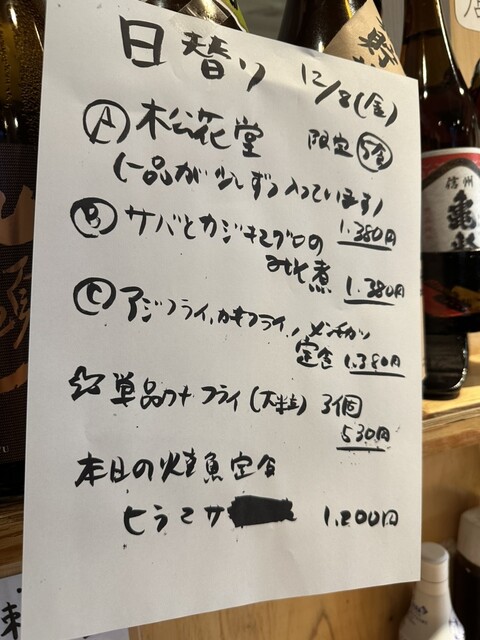 日替り 12/8(金)
Ⓐ松花堂 限定⑤食
(一品が少しずつ入っています)
1.380円
Ⓑサバとカジキマグロの
みそ煮 1.380円
Ⓒアジフライ、カキフライ、メンチカツ
定食 1.380円
☆単品カキフライ(大粒)3個
530円
本日の焼魚定食
ヒラマサ 1.200円
信州